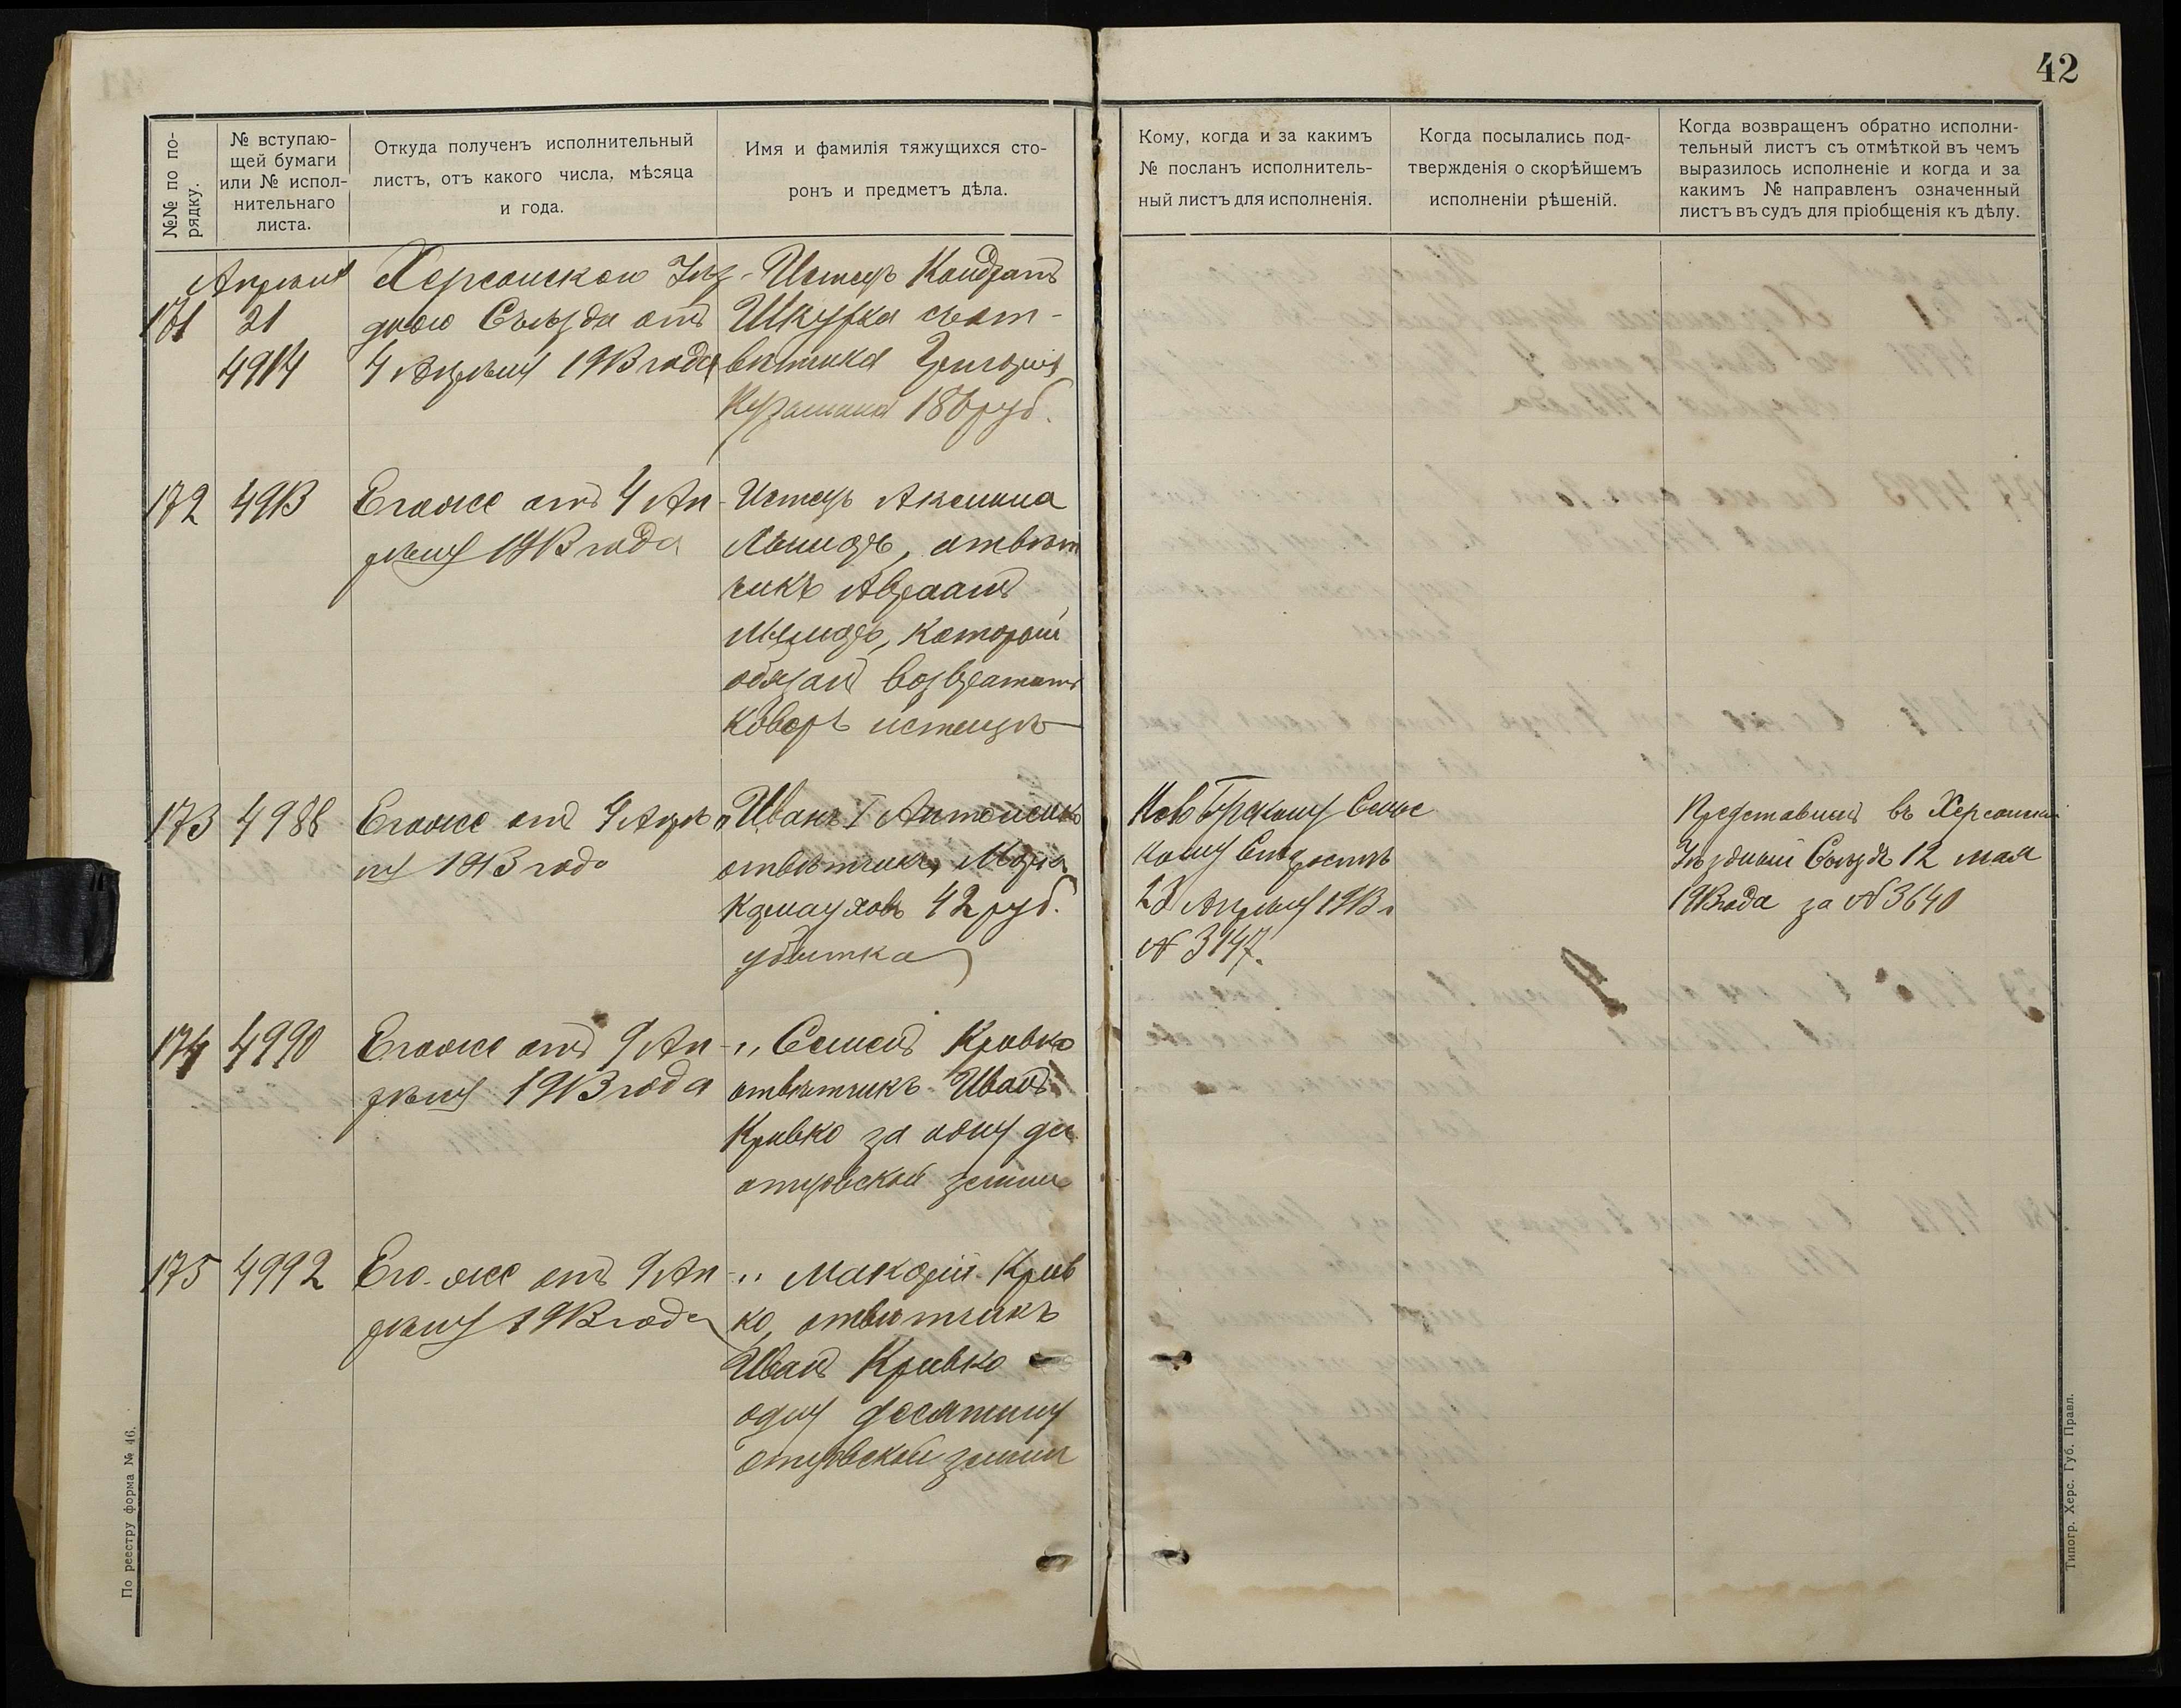 42
№№ по по-
рядку.
№ вступаю-
щей бумаги
или № испол-
нительнаго
листа.
Откуда полученъ исполнительный
листъ, отъ какого числа, мѣсяца
и года.
Имя и фамилія тяжущихся сто-
ронъ и предметъ дѣла.
Кому, когда и за какимъ
№ посланъ исполнитель-
ный листъ для исполненія.
Когда посылались под-
твержденія о скорѣйшемъ
исполненіи рѣшеній.
Когда возвращенъ обратно исполни-
тельный листъ съ отмѣткой въ чемъ
выразилось исполненіе и когда и за
какимъ № направленъ означенный
листъ въ судъ для пріобщенія къ дѣлу.
Апрѣля
171
21
4914
Херсонскою Уѣз-
дною Съѣзда отъ
4 Апрѣля 1913 года
Истецъ Кондратъ
Шкурка
Григорій
180 руб.
172
4913
Егоже отъ 4 Ап
рѣля 1913 года
Истецъ Аксинья
отвѣт
чикъ Авраамъ
который
обязанъ возвратить
коверъ истецъ
173
4988
Егоже отъ 4 Апрѣ
ля 1913 года
" Иванъ Антоненко
отвѣтчикъ
42 руб.
убытка
23 Апрѣля 1913 г
№ 3147.
Представленъ въ Херсонскій
Уѣздный Съѣздъ 12 мая
1913 года за № 3640
174
4990
Егоже отъ 9 Ап
рѣля 1913 года
" Семенъ Кривко
отвѣтчикъ Иванъ
Кривко за одну де
отцовской земли
175
4992
Его-же отъ 9 Ап
рѣля 1913 года
" Макарій Крив
ко, отвѣтчикъ
Иванъ Кривко
одну десятину
отцовской земли
По реестру форма № 46.
Типогр. Херс. Губ. Правл.